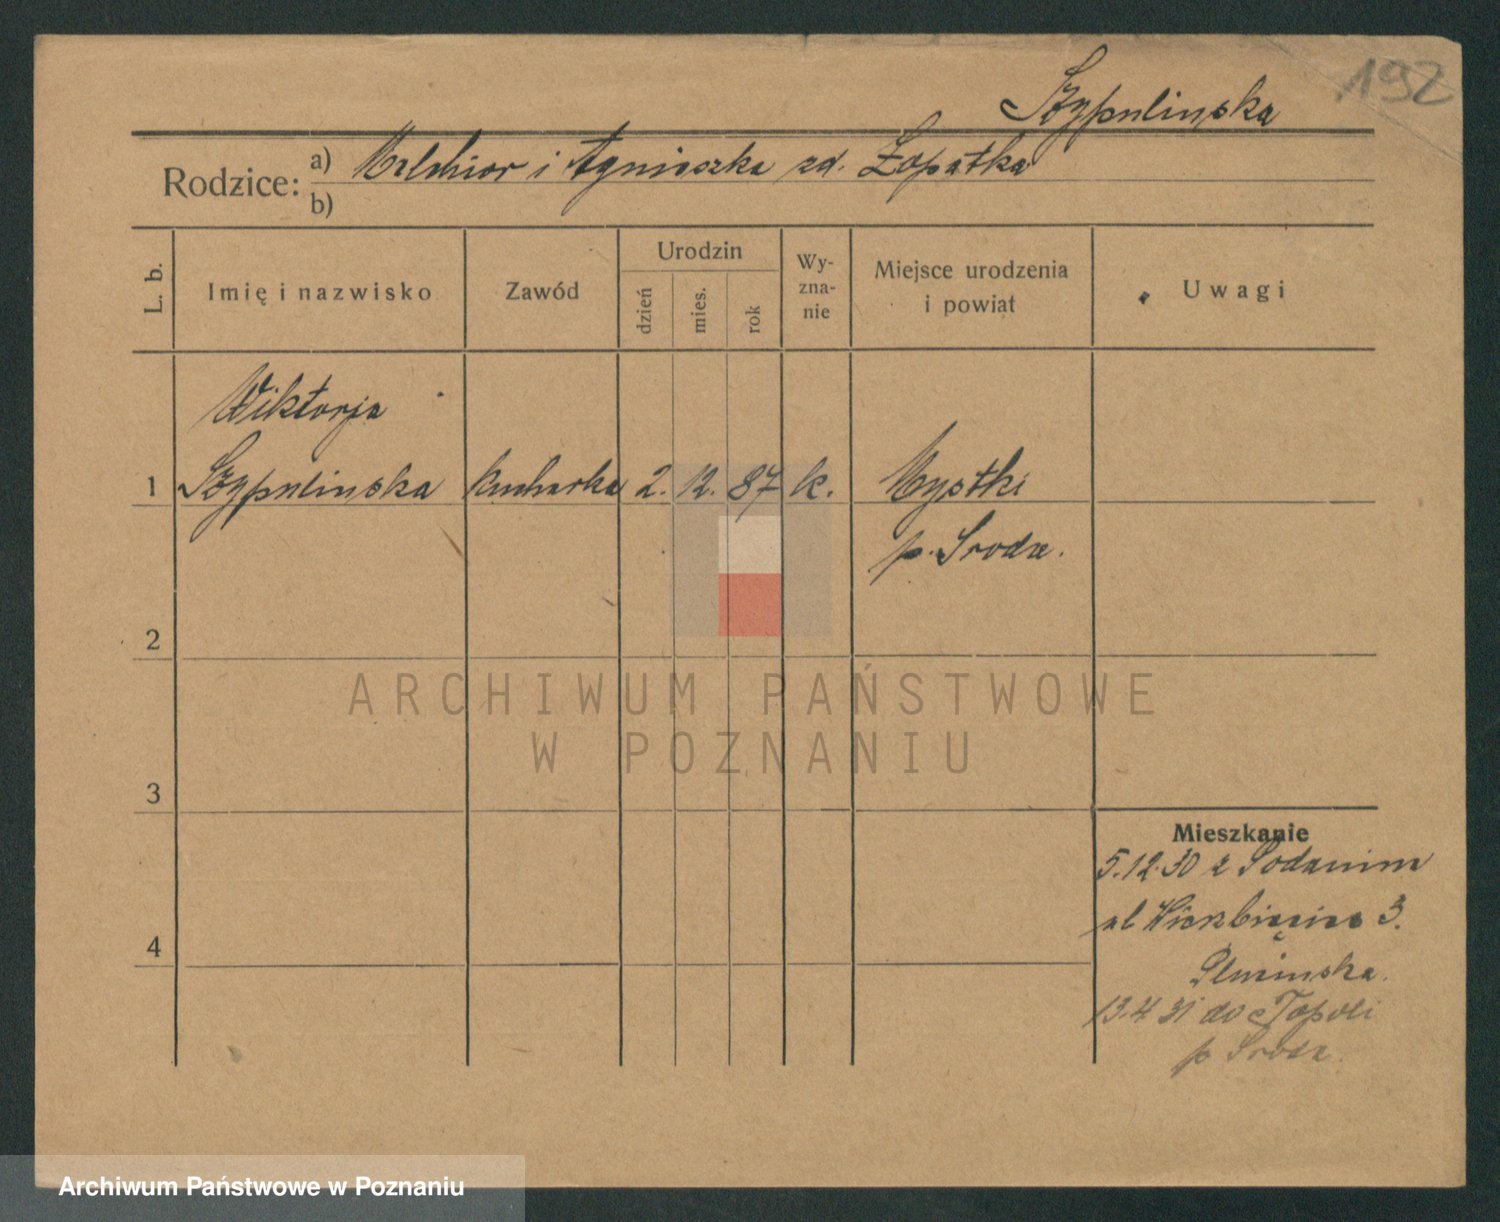 192
Szypulinska
Rodzice: a) Melchior i Agnieszka zd. Łopatka
b)
L. b. Imię i nazwisko Zawód Urodzin dzień mies. rok Wyznanie Miejsce urodzenia i powiat Uwagi
Wiktorja
1 Szypulinska kucharka 2. 12. 87 k. Mystki
p. Sroda.
2
ARCHIWUM PAŃSTWOWE
W POZNANIU
3
Mieszkanie
5.12.30 z
ul Wierzbięcice 3.
4
13.4 31 do Topoli
p Sroda.
Archiwum Państwowe w Poznaniu